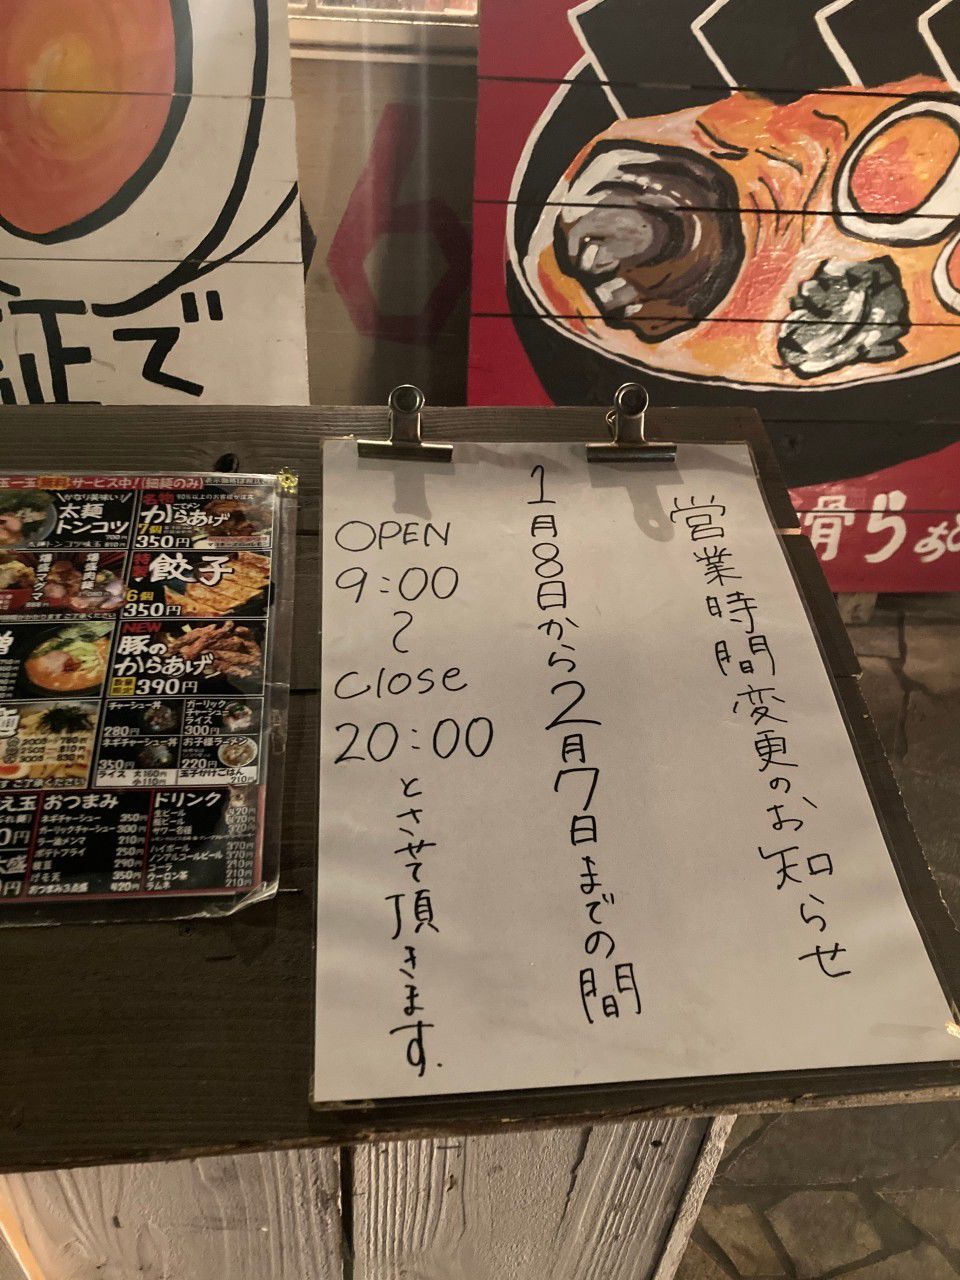 営業時間変更のお知らせ
1月8日から2月7日までの間
OPEN
9:00
〜
close
20:00
とさせて頂きます.
証で
骨らぁ
玉一玉無料サービス中!(細麺のみ)
かなり美味い!
太麺
トンコツ
名物
90%以上のお客様が注文
からあげ
7個
350円
餃子
6個
350円
NEW
豚の
からあげ
数量限定
390円
チャーシュー丼
280円
ガーリック
チャーシュー
ライス
300円
ネギチャーシュー丼
350円
お子様ラーメン
220円
ライス
大160円
小110円
玉子かけごはん
210円
え玉
おつまみ
ネギチャーシュー 350円
ガーリックチャーシュー 300円
ラー油メンマ 210円
ポテトフライ 250円
枝豆 290円
げそ天 350円
おつまみ3点盛 420円
ドリンク
生ビール
瓶ビール
サワー各種
ハイボール 370円
ノンアルコールビール 370円
コーラ 210円
ウーロン茶 210円
ラムネ 210円